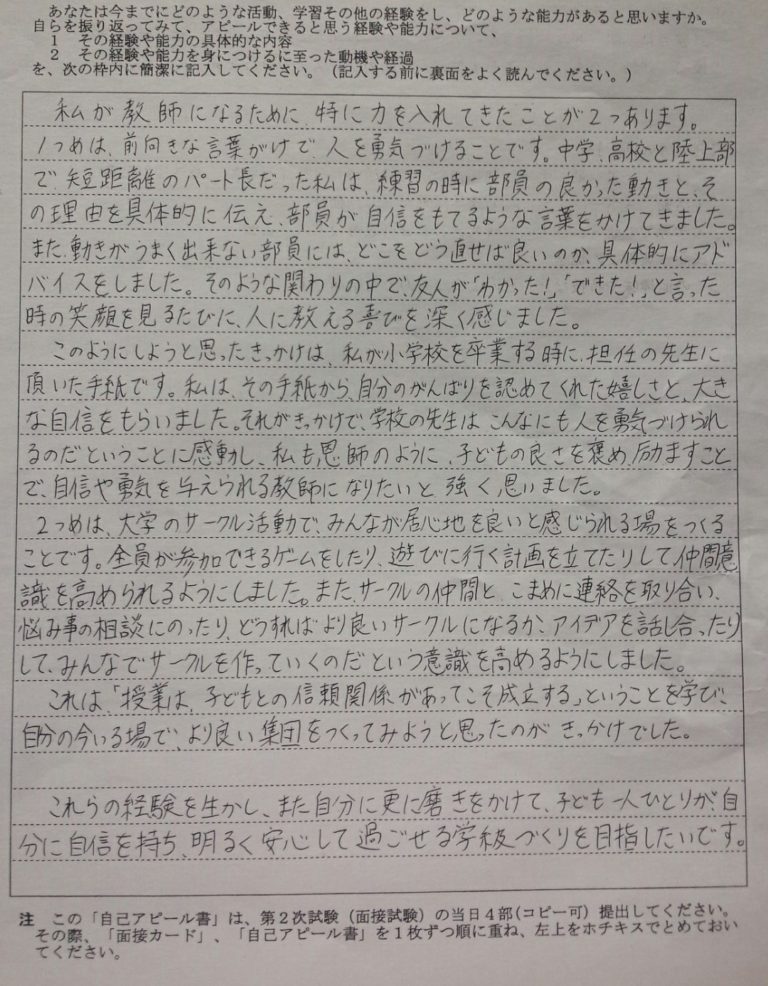 あなたは今までにどのような活動、学習その他の経験をし、どのような能力があると思いますか。
自らを振り返ってみて、アピールできると思う経験や能力について、
1 その経験や能力の具体的な内容
2 その経験や能力を身につけるに至った動機や経過
を、次の枠内に簡潔に記入してください。（記入する前に裏面をよく読んでください。）
私が教師になるために、特に力を入れてきたことが2つあります。
1つめは、前向きな言葉がけで人を勇気づけることです。中学、高校と陸上部
で短距離のパート長だった私は、練習の時に部員の良かった動きと、そ
の理由を具体的に伝え、部員が自信をもてるような言葉をかけてきました。
また、動きがうまく出来ない部員には、どこをどう直せば良いのか、具体的にアド
バイスをしました。そのような関わりの中で、友人が「わかった！」「できた！」と言った
時の笑顔を見るたびに、人に教える喜びを深く感じました。
このようにしようと思ったきっかけは、私が小学校を卒業する時に、担任の先生に
頂いた手紙です。私は、その手紙から、自分のがんばりを認めてくれた嬉しさと、大き
な自信をもらいました。それがきっかけで、学校の先生はこんなにも人を勇気づけられ
るのだということに感動し、私も恩師のように、子どもの良さを褒め、励ますこと
で、自信や勇気を与えられる教師になりたいと強く思いました。
2つめは、大学のサークル活動で、みんなが居心地を良いと感じられる場をつくる
ことです。全員が参加できるゲームをしたり、遊びに行く計画を立てたりして、仲間意
識を高められるようにしました。また、サークルの仲間と、こまめに連絡を取り合い、
悩み事の相談にのったり、どうすればより良いサークルになるか、アイデアを話し合ったり
して、みんなでサークルを作っていくのだという意識を高めるようにしました。
これは、「授業は、子どもとの信頼関係があってこそ成立する」ということを学び、
自分の今いる場で、より良い集団をつくってみようと思ったのがきっかけでした。
これらの経験を生かし、また自分に更に磨きをかけて、子ども一人ひとりが、自
分に自信を持ち、明るく安心して過ごせる学級づくりを目指したいです。
注 この「自己アピール書」は、第2次試験（面接試験）の当日4部(コピー可）提出してください。
その際、「面接カード」、「自己アピール書」を1枚ずつ順に重ね、左上をホチキスでとめておい
てください。